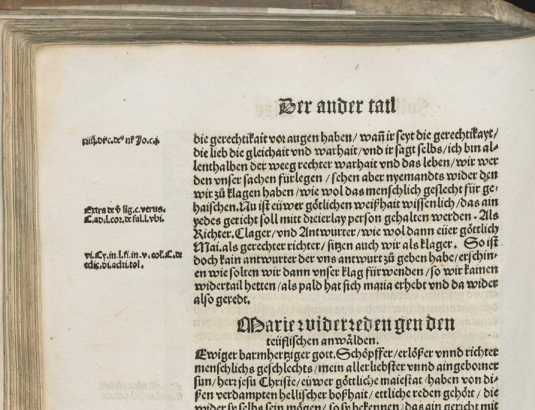 Der ander tail
die gerechtikait vor augen haben/ wañ ir seyt die gerechtikayt/
die lieb die gleichait vnd warhait/ vnd ir sagt selbs/ ich bin al-
lenthalben der weeg rechter warhait vnd das leben/ wir wer
den vnser sachen fürlegen/ sehen aber nyemandts wider den
wir zů klagen haben/ wie wol das menschlich geslecht für ge-
haischen. Nu ist eüwer götlichen weißhait wissenlich/ das ain
yedes gericht soll mitt dreierlay person gehalten werden. Als
Richter. Clager/ vnd Antwurter/ wie wol dann eüer götlich
Mai. als gerechter richter/ sitzen auch wir als klager. So ist
doch kain antwurter der vns antwurt zů geben habe/ erschin-
en wie solten wir dann vnser klag fürwenden/ so wir kainen
widertail hetten/ als pald hat sich maria erhebt vnd da wider
also geredt.
Marie widerreden gen den
teüflischen anwälden.
Ewiger barmhertziger gott. Schöpffer/ erlößer vnnd richter
menschlichs geschlechts/ mein aller liebster vnnd aingeborner
sun/ herr jesu Christe/ eüwer göttliche maiestat/ haben von di-
ßen verdampten hellischer boßhait/ ettliche reden gehört/ die